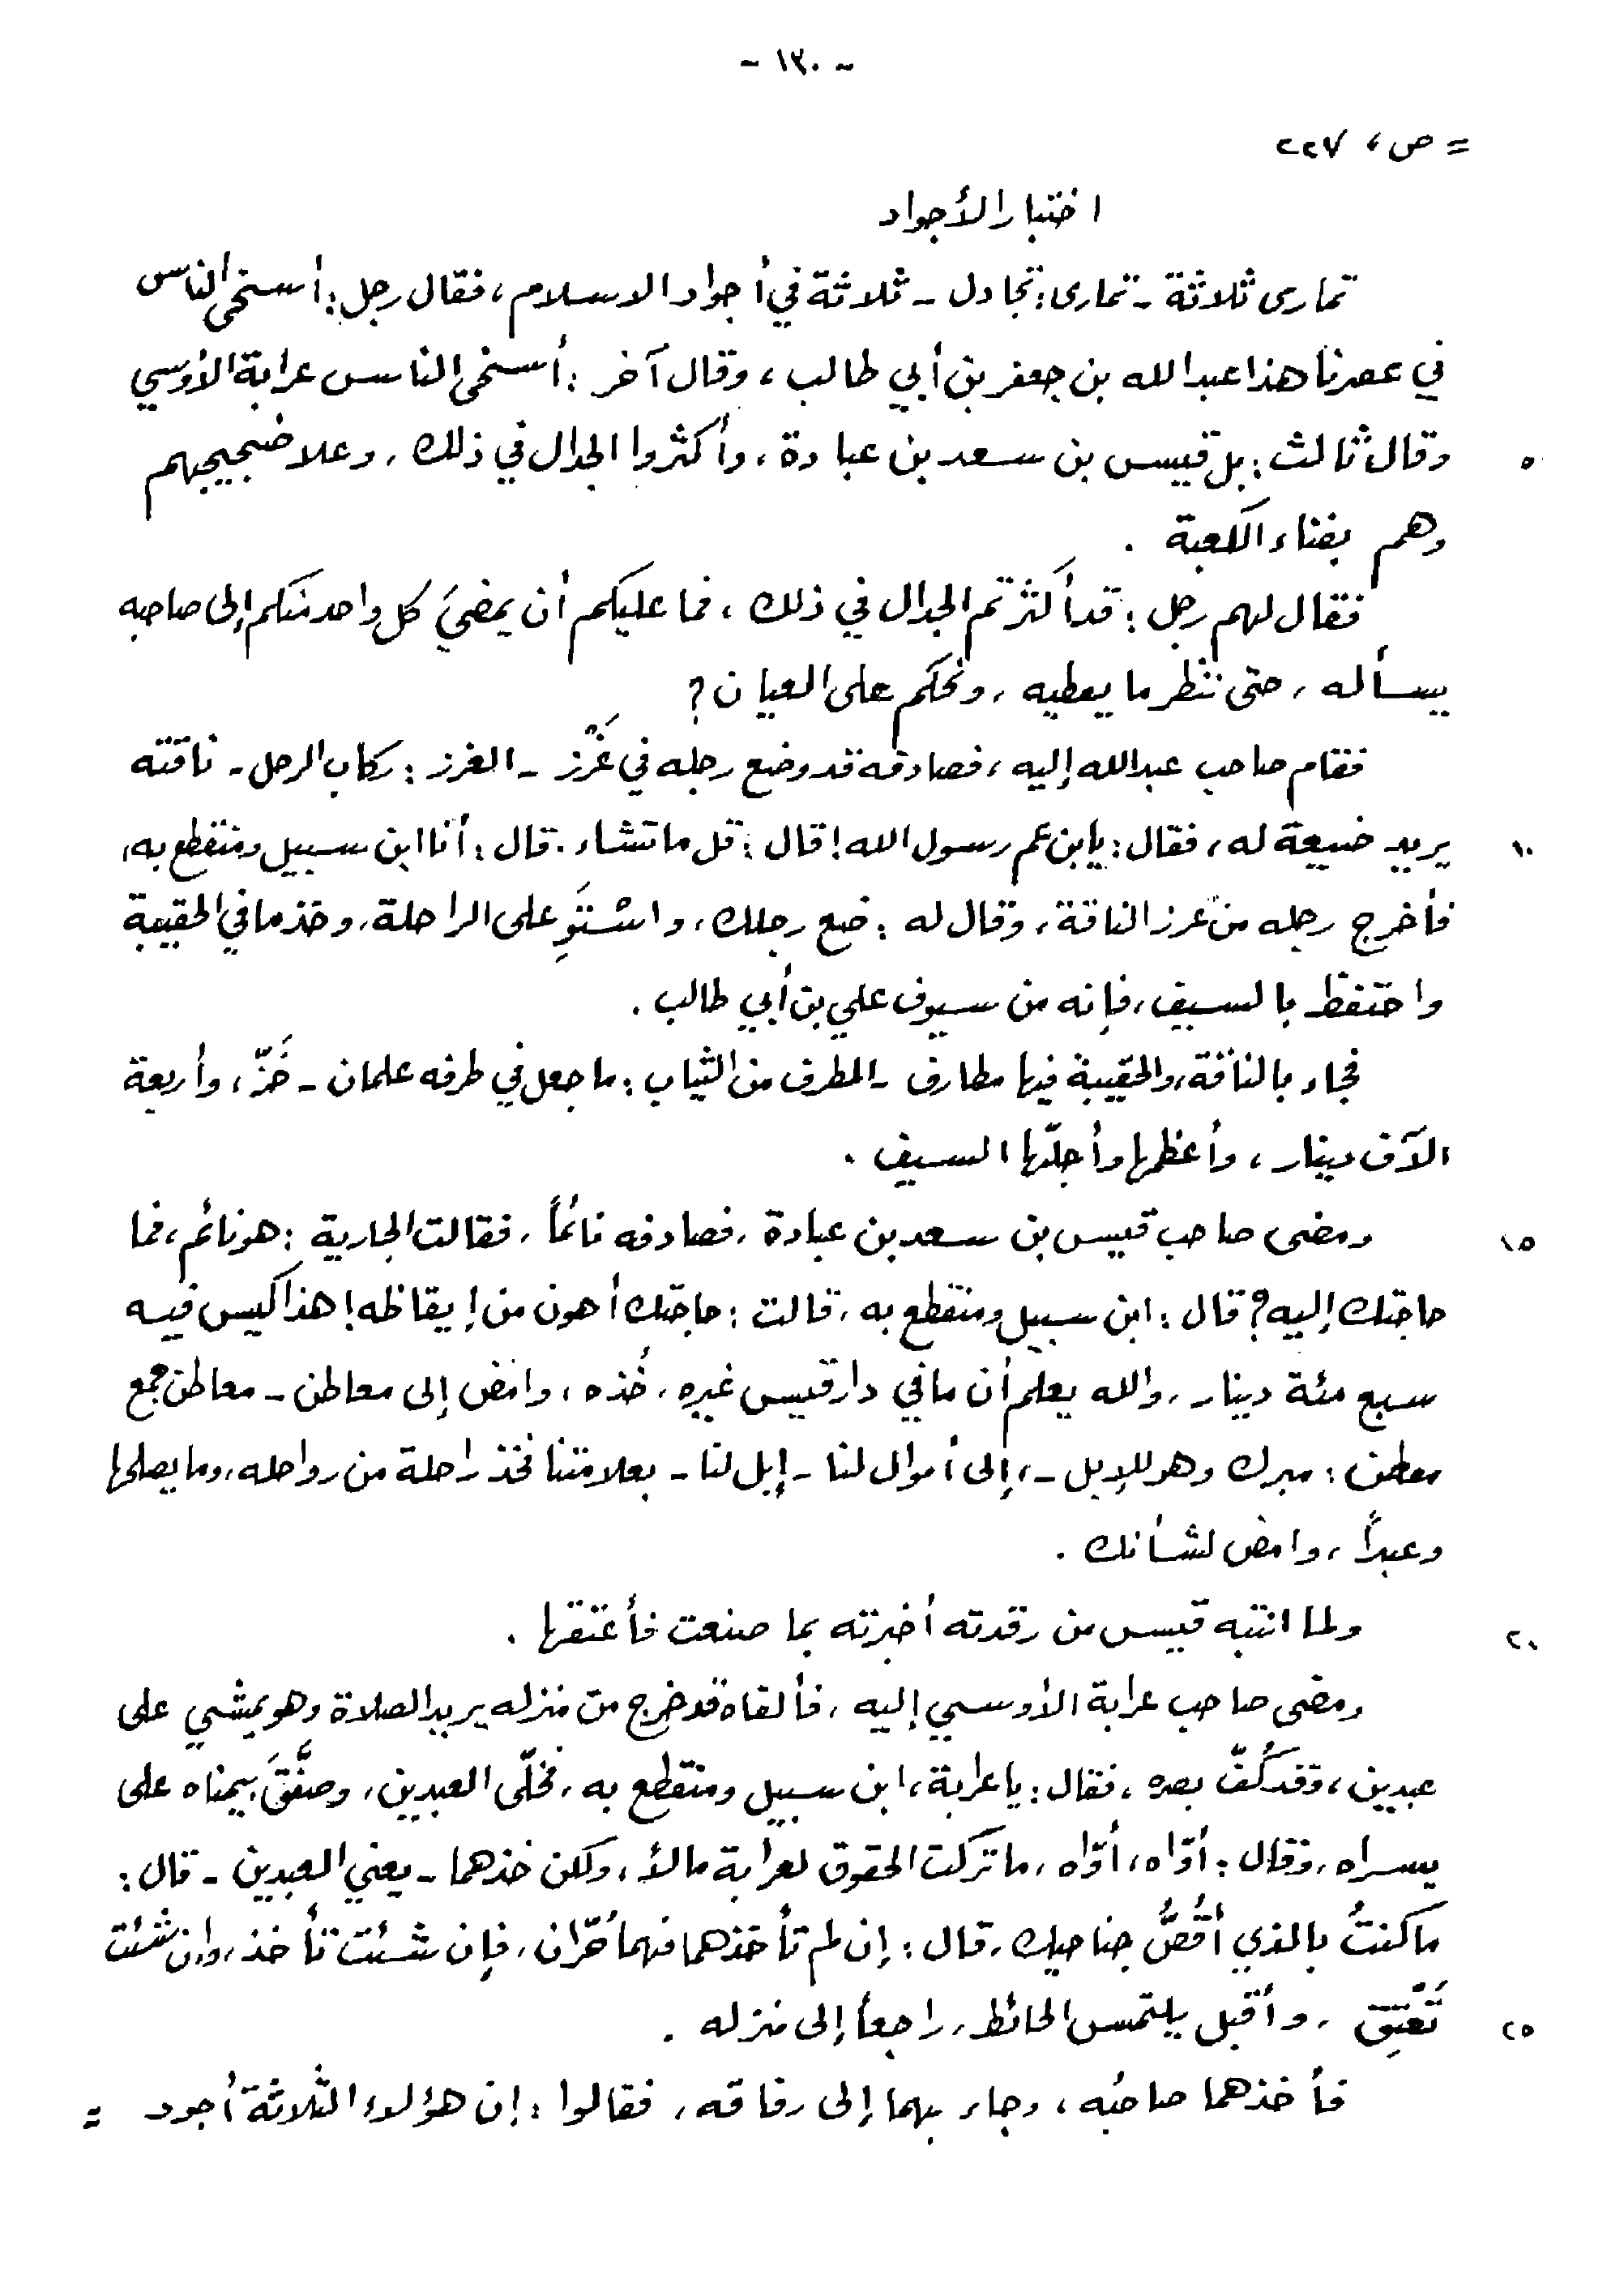 - ١٣٠ -
= ص، ٢٢٧
اختبار الأجواد
تمارى ثلاثة - تمارى: تجادل - ثلاثة في أجواد الاسلام، فقال رجل: أسخى الناس
في عصرنا هذا عبد الله بن جعفر بن أبي طالب، وقال آخر: أسخى الناس عرابة الأوسي
٥ وقال ثالث: بل قيس بن سعد بن عبادة، وأكثروا الجدال في ذلك، وعلا ضجيجهم
وهم بفناء الكعبة.
فقال لهم رجل: قد أكثرتم الجدال في ذلك، فما عليكم أن يمضيَ كل واحد منكم إلى صاحبه
يسأله، حتى ننظر ما يعطيه، ونحكم على العيان؟
فقام صاحب عبد الله إليه، فصادفه قد وضع رجله في غَرْز - الغرز: ركاب الرحل - ناقته
١٠ يريد ضيعة له، فقال: يابن عم رسول الله! قال: قل ما تشاء. قال: أنا ابن سبيل ومنقطع به،
فأخرج رجله من غرز الناقة، وقال له: ضع رجلك، واستَوِ على الراحلة، وخذ ما في الحقيبة
واحتفظ بالسيف، فإنه من سيوف علي بن أبي طالب.
فجاء بالناقة، والحقيبة فيها مطارف - المطرف من الثياب: ما جعل في طرفه علمان - خَزّ، وأربعة
الآف دينار، وأعظمها وأجلّها السيف.
١٥ ومضى صاحب قيس بن سعد بن عبادة، فصادفه نائماً، فقالت الجارية: هو نائم، فما
حاجتك إليه؟ قال: ابن سبيل ومنقطع به، قالت: حاجتك أهون من إيقاظه! هذا كيس فيه
سبع مئة دينار، والله يعلم أن ما في دار قيس غيره، خُذه، وامض إلى معاطن - معاطن جمع
معطن: مبرك وهو للإبل -، إلى أموال لنا - إبل لنا - بعلامتنا فخذ راحلة من رواحله، وما يصلحها
وعبداً، وامض لشأنك.
٢٠ ولما انتبه قيس من رقدته أخبرته بما صنعت فأعتقها.
ومضى صاحب عرابة الأوسي إليه، فألفاه قد خرج من منزله يريد الصلاة وهو يمشي على
عبدين، وقد كُفّ بصره، فقال: يا عرابة، ابن سبيل ومنقطع به، فخلّى العبدين، وصفَّقَ بيمناه على
يسراه، وقال: أوّاه، أوّاه، ما تركت الحقوق لعرابة مالاً، ولكن خذهما - يعني العبدين - قال:
ما كنتُ بالذي أقُصُّ جناحيك، قال: إن لم تأخذهما فهما حُرّان، فإن شئت تأخذ، وإن شئت
٢٥ تُعْتِق، وأقبل يلتمس الحائط، راجعاً إلى منزله.
فأخذهما صاحبُه، وجاء بهما إلى رفاقه، فقالوا: إن هؤلاء الثلاثة أجود =